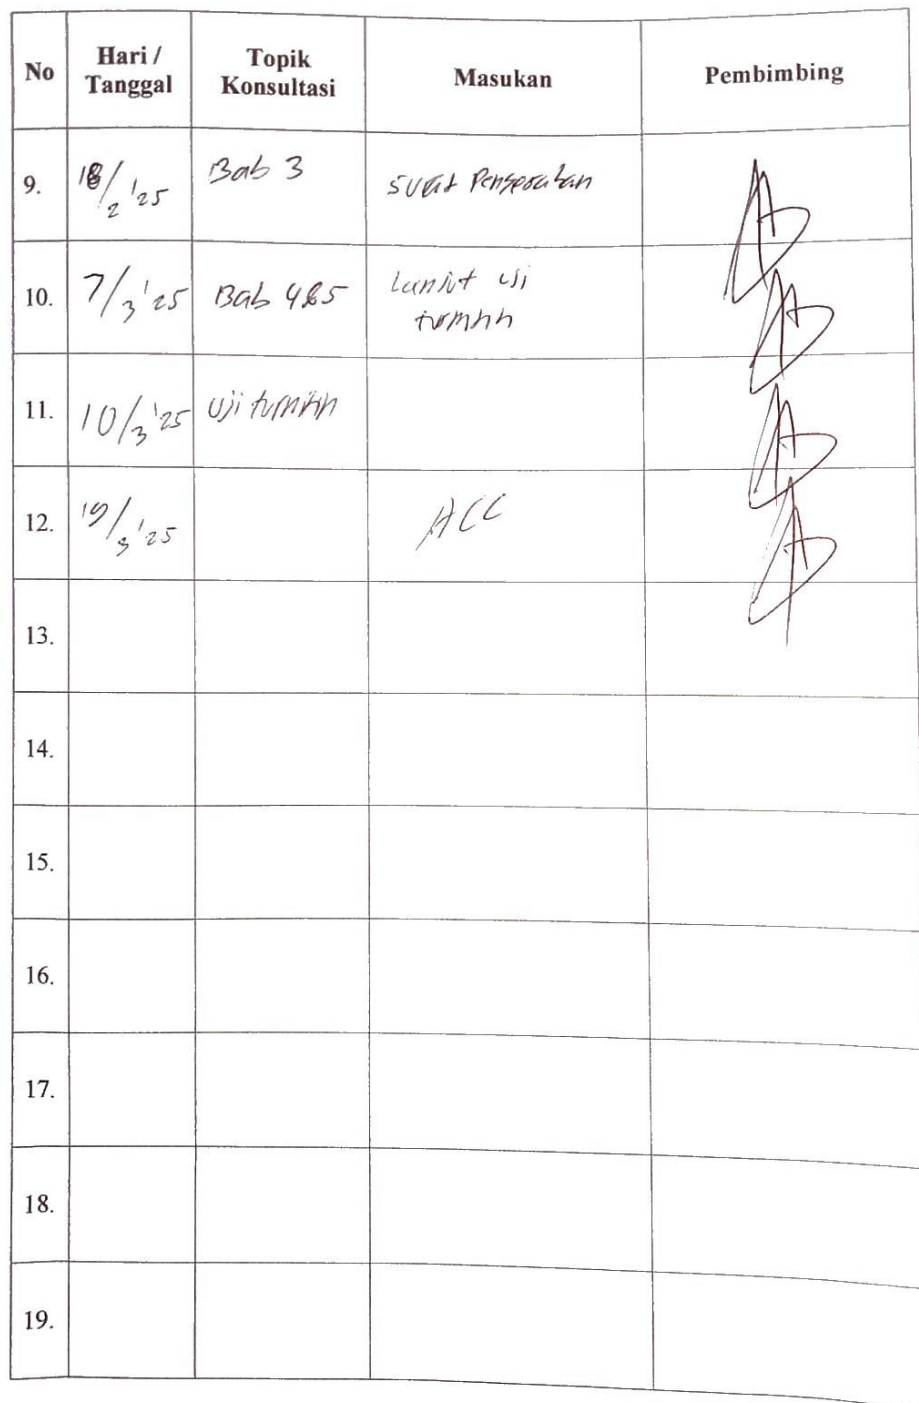 No Hari / Tanggal Topik Konsultasi Masukan Pembimbing
9. 18/2 '25 Bab 3 surat
10. 7/3 '25 Bab 4&5 Lanjut uji
turnitin
11. 10/3 '25 Uji turnitin
12. 19/3 '25 ACC
13.
14.
15.
16.
17.
18.
19.